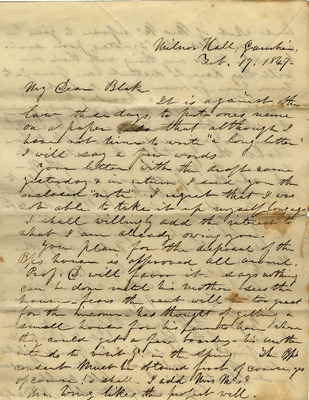 Milnor Hall, Gambier,
Feb. 19, 1867.
My Dear Blake
It is against the
law these days to put ones name
on a paper that although I
have not time to write "a long letter"
I will say a few words.
Your letter with the draft came
yesterday & in return I send you the
enclosed "note" I regret that I was
not able to take it up myself
I shall willingly add the interest to
what I am already owing you.
Your plan for the disposal of the
Bp's house is approved all around.
Prof. S will favor it. says nothing
can be done until his mother sees the
house - fears the rent will be too great
for the income. Has thought of getting a
small house for his mother here where
they could get a few boarders. his mother
intends to visit G. in the spring. The Bp's
consent must be obtained first of course, yes
of course I shall. I add this
Mr. Wing likes the project well.